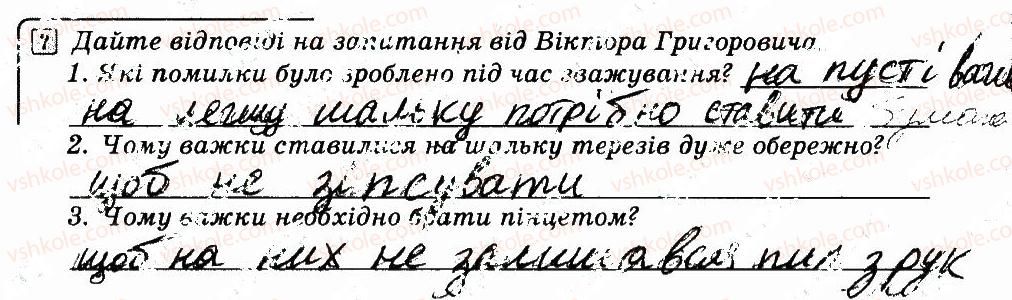 7 Дайте відповіді на запитання від Віктора Григоровича.
1. Які помилки було зроблено під час зважування? на пусті ваги
на легшу шальку потрібно ставити
2. Чому важки ставилися на шальку терезів дуже обережно?
щоб не зіпсувати
3. Чому важки необхідно брати пінцетом?
щоб на них не залишався пил з рук